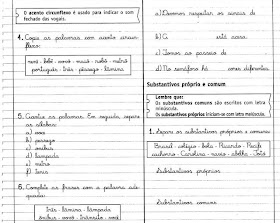 O acento circunflexo é usado para indicar o som
fechado das vogais.
4. Copie as palavras com acento circun-
flexo:
português - três - pêssego - lâmina
5. Acentue as palavras. Em seguida, separe
as sílabas:
a) voce
b) pessego
c) onibus
d) lampada
e) metro
f) tenis
6. Complete as frases com a palavra ade-
quada:
trás - lâmina - lâmpada
ônibus - vovó - trânsito - você
a) Devemos respeitar os sinais de
b) O está
c) Iremos ao passeio de
d) No semáforo há cores diferentes.
Substantivos próprio e comum
Lembre que:
Os substantivos comuns são escritos com letra
minúscula.
Os substantivos próprios iniciam-se com letra maiúscula.
1. Separe os substantivos próprios e comuns:
Brasil - colégio - bola - Ricardo - Recife
cachorro - Carolina - navio - abelha - Gota
Substantivos próprios
Substantivos comuns